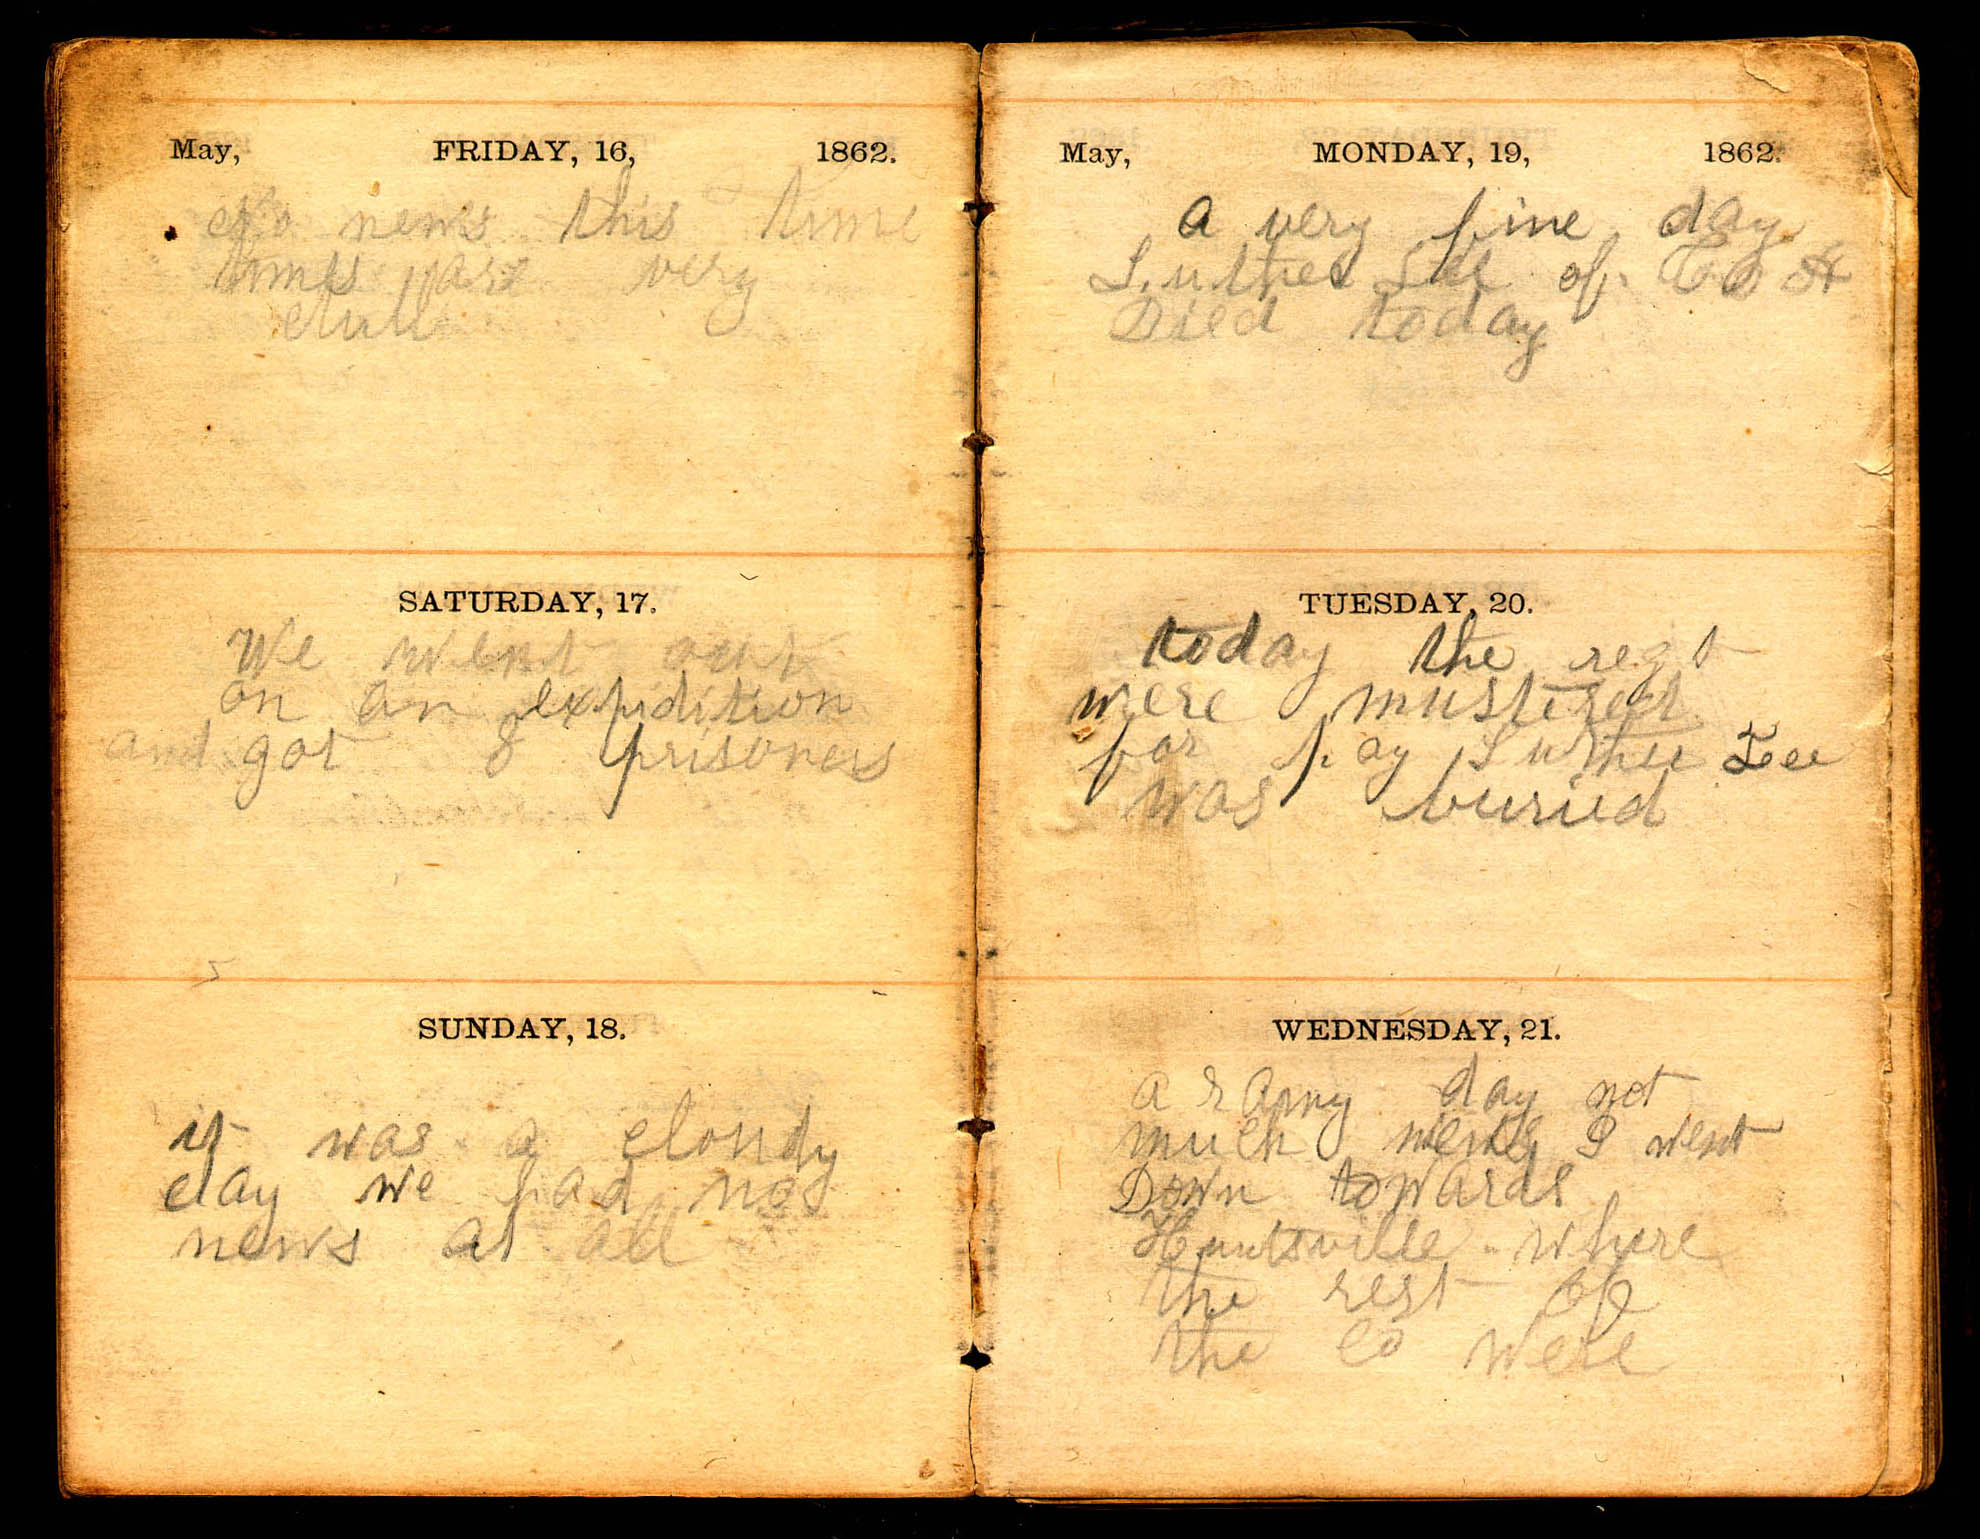 May, FRIDAY, 16, 1862.
No news this time
times are very
dull
SATURDAY, 17.
We went out
on an expidition
and got 8 prisoners
SUNDAY, 18.
it was a cloudy
day we had no
news at all
May, MONDAY, 19, 1862.
a very fine day
Luther Lee of Co H
Died today
TUESDAY, 20.
today the regt
were mustered
for pay Luther Lee
was buried
WEDNESDAY, 21.
a rainy day not
much news I went
Down towards
Huntsville where
the rest of
the co were